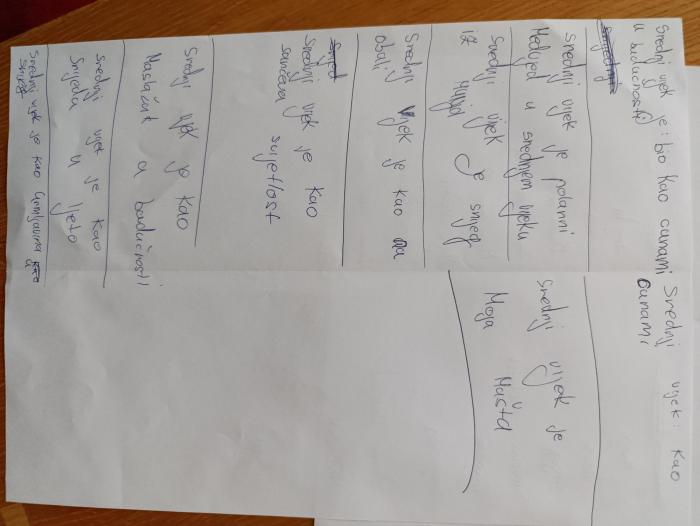 Srednji vijek je: bio kao cunami
u budućnosti
Srednji vijek je polarni
Medvjed u srednjem vijeku
Srednji vijek je snijeg
iz
Srednji vijek je kao na
obali
Srednji vijek je kao
sunčeva svijetlost
Srednji vijek je kao
Maslačak u badućnosti
srednji vijek je kao
Snijeg u ljeto
Srednji vijek je kao
Srednji vijek: kao
Cunami
Srednji vijek je
Moja Mašta